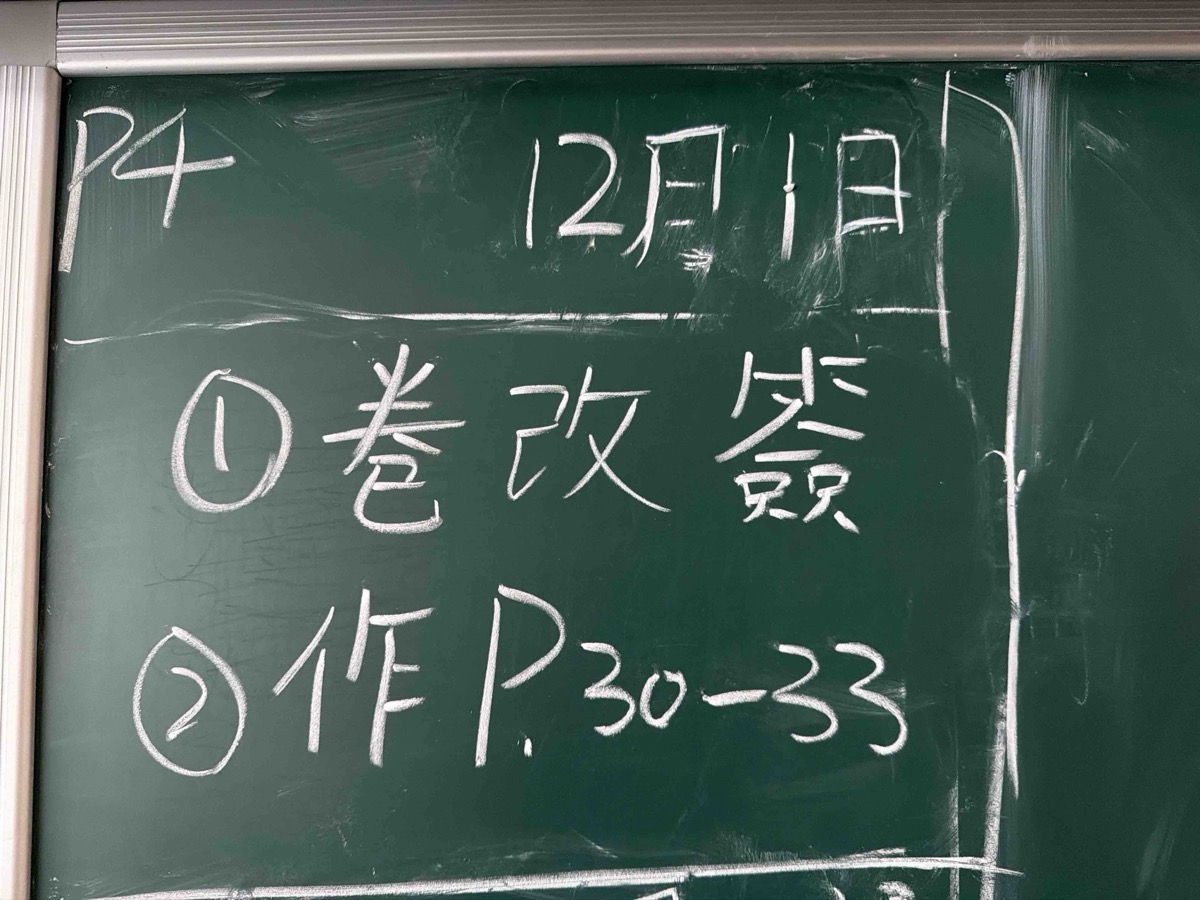 P4 12月1日
①卷改簽
②作P.30-33